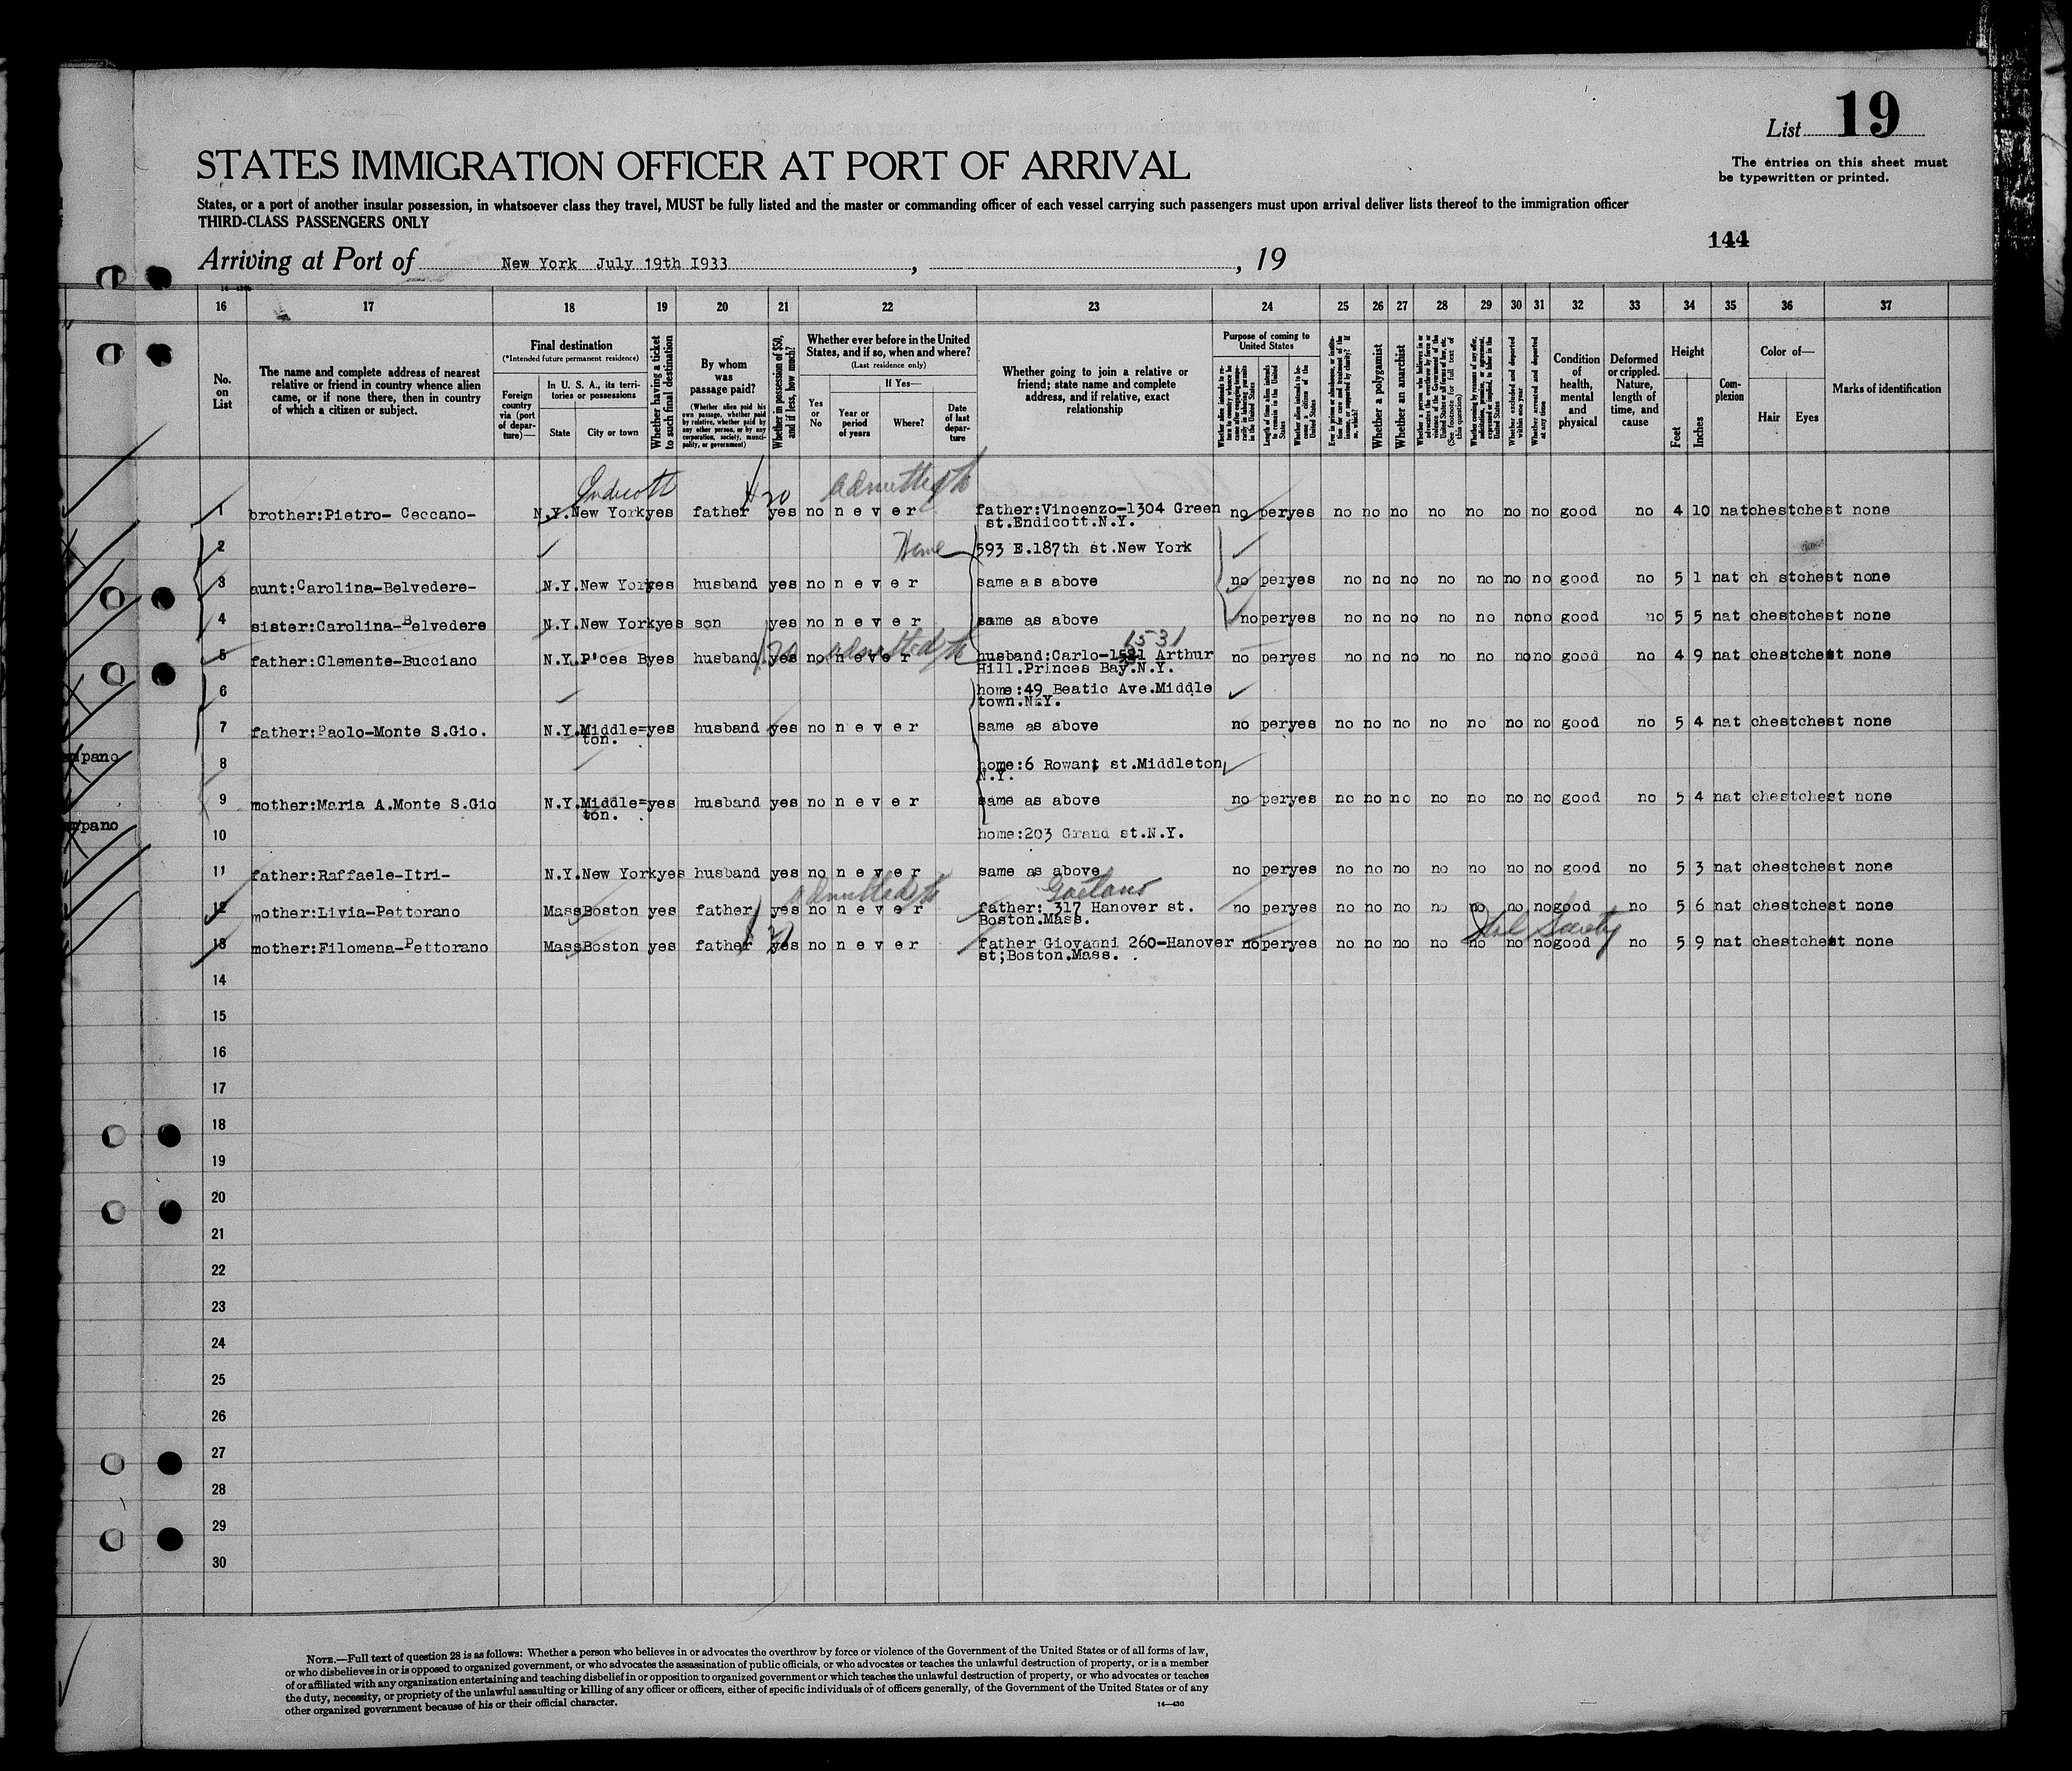 List 19
STATES IMMIGRATION OFFICER AT PORT OF ARRIVAL
The entries on this sheet must
be typewritten or printed.
States, or a port of another insular possession, in whatsoever class they travel, MUST be fully listed and the master or commanding officer of each vessel carrying such passengers must upon arrival deliver lists thereof to the immigration officer
THIRD-CLASS PASSENGERS ONLY
144
Arriving at Port of New York July 19th I933 , , 19
16 17 18 19 20 21 22 23 24 25 26 27 28 29 30 31 32 33 34 35 36 37
No. on List
The name and complete address of nearest relative or friend in country whence alien came, or if none there, then in country of which a citizen or subject.
Final destination
(*Intended future permanent residence)
Foreign country via (port of departure)—
In U. S. A., its territories or possessions
State
City or town
Whether having a ticket to such final destination
By whom was passage paid?
(Whether alien paid his own passage, whether paid by relative, whether paid by any other person, or by any corporation, society, municipality, or government)
Whether in possession of $50, and if less, how much?
Whether ever before in the United States, and if so, when and where?
(Last residence only)
Yes or No
If Yes—
Year or period of years
Where?
Date of last departure
Whether going to join a relative or friend; state name and complete address, and if relative, exact relationship
Purpose of coming to United States
Length of time alien intends to remain in the United States
Whether alien intends to become a citizen of the United States
Whether a polygamist
Whether an anarchist
(See footnote for full text of this question)
Whether excluded and deported within one year
Whether arrested and deported at any time
Condition of health, mental and physical
Deformed or crippled. Nature, length of time, and cause
Height
Feet
Inches
Complexion
Color of—
Hair
Eyes
Marks of identification
Endicott 20 admitted
1 brother:Pietro- Ceccano- N.Y. New York yes father yes no n e v e r father:Vincenzo-1304 Green st.Endicott.N.Y. no per yes no no no no no no no good no 4 10 nat chest chest none
2 Home 593 E.187th st.New York
3 aunt:Carolina-Belvedere- N.Y. New York yes husband yes no n e v e r same as above no per yes no no no no no no no good no 5 1 nat ch st chest none
4 sister:Carolina-Belvedere N.Y. New York yes son yes no n e v e r same as above no per yes no no no no no no no good no 5 5 nat chest chest none
20 admitted 1531
5 father:Clemente-Bucciano N.Y. P'ces B yes husband yes no n e v e r husband:Carlo- Arthur Hill.Princes Bay.N.Y. no per yes no no no no no no no good no 4 9 nat chest chest none
6 home:49 Beatic Ave.Middle town.N.Y.
7 father:Paolo-Monte S.Gio. N.Y. Middle=ton. yes husband yes no n e v e r same as above no per yes no no no no no no no good no 5 4 nat chest chest none
pano
8 home:6 Rowant st.Middleton N.Y.
9 mother:Maria A.Monte S.Gio N.Y. Middle=ton. yes husband yes no n e v e r same as above no per yes no no no no no no no good no 5 4 nat chest chest none
pano
10 home:203 Grand st.N.Y.
11 father:Raffaele-Itri- N.Y. New York yes husband yes no n e v e r same as above no per yes no no no no no no no good no 5 3 nat chest chest none
admitted Gaetano
12 mother:Livia-Pettorano Mass Boston yes father yes no n e v e r father: 317 Hanover st. Boston.Mass. no per yes no no no no no no no good no 5 6 nat chest chest none
13 mother:Filomena-Pettorano Mass Boston yes father yes no n e v e r father Giovanni 260-Hanover st;Boston.Mass. no per yes no no no no no no no good no 5 9 nat chest chest none
14
15
16
17
18
19
20
21
22
23
24
25
26
27
28
29
30
NOTE.—Full text of question 28 is as follows: Whether a person who believes in or advocates the overthrow by force or violence of the Government of the United States or of all forms of law,
or who disbelieves in or is opposed to organized government, or who advocates the assassination of public officials, or who advocates or teaches the unlawful destruction of property, or is a member
of or affiliated with any organization entertaining and teaching disbelief in or opposition to organized government or which teaches the unlawful destruction of property, or who advocates or teaches
the duty, necessity, or propriety of the unlawful assaulting or killing of any officer or officers, either of specific individuals or of officers generally, of the Government of the United States or of any
other organized government because of his or their official character.
14—430